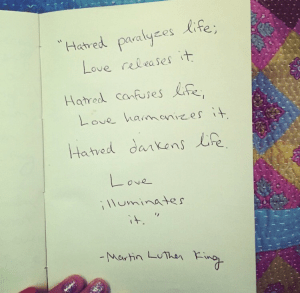 "Hatred paralyzes life;
Love releases it.
Hatred confuses life,
Love harmonizes it.
Hatred darkens life.
Love
illuminates
it."
-Martin Luther King